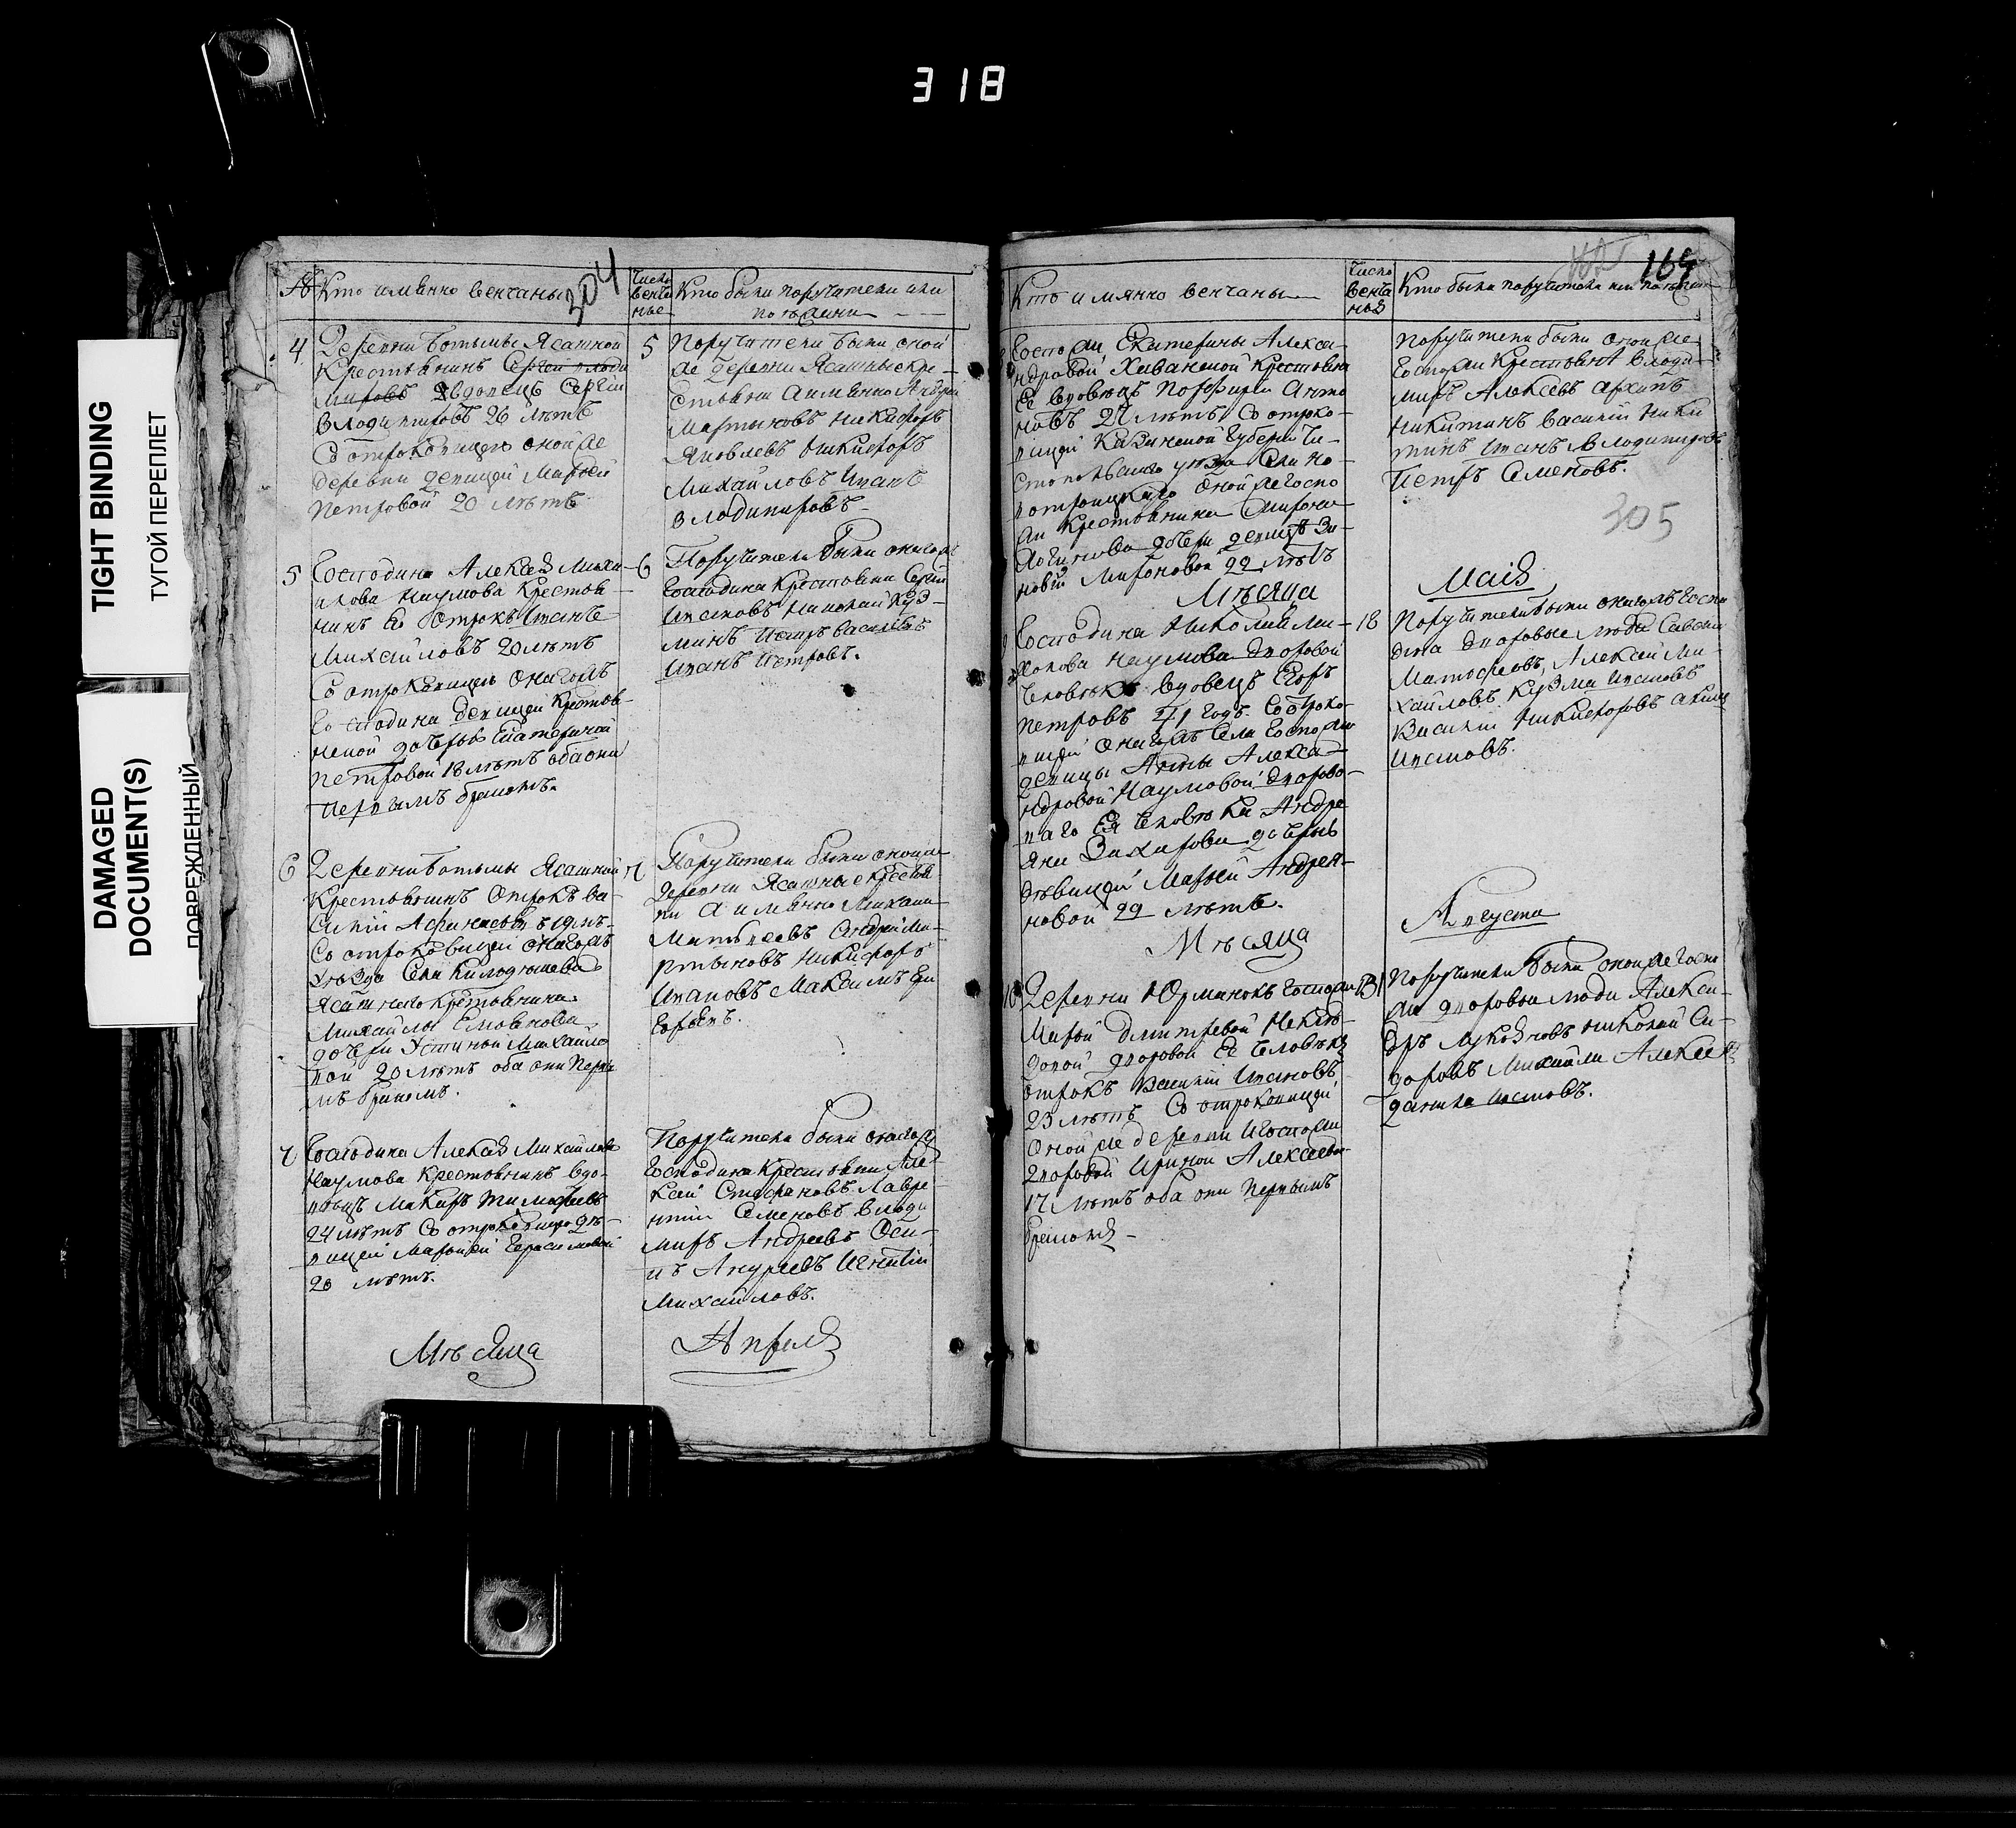 318
TIGHT BINDING
ТУГОЙ ПЕРЕПЛЕТ
DAMAGED
DOCUMENT(S)
ПОВРЕЖДЕННЫЙ
204
Кто имянно венчаны
Число
венча
ные
Кто были поручители или
4
Деревни Ясашной
Крестьянинъ Сергей Влоди
мировъ Вдовецъ Сергей
Влодимировъ 26 летъ
Со отроковицею оной же
деревни девицей Марьей
Петровой 20 летъ
5
Поручители были оной
же деревни Ясашные кре-
стьяни аимянно Андрей
Мартыновъ Никифоръ
Яковлевъ Никифоръ
Михайловъ Иванъ
Влодимировъ
5
Господина Алексея Михаи-
лова Наумова Крестья-
нинъ Ево Отрокъ Иванъ
Михайловъ 20 летъ
Со отроковицею онагожъ
Господина девицей Крестья-
нской дочерью Екатериной
Петровой 18 летъ оба они
первымъ бракомъ.
6
Поручители были онагожъ
Господина Крестьяни Сергей
Ивановъ Николай Куз-
минъ Петръ Васильевъ
Иванъ Петровъ.
6
Деревни Ясашной
Крестьянинъ Отрокъ Ва-
силий Афанасьевъ 19 лъ-
Со отроковицей онагожъ
уъзда Села
Ясашнаго крестьянина
Михайлы
дочери Устиньи Михайло
вой 20 летъ оба они первы
мъ бракомъ.
7
Поручители были оной же
деревни Ясашные крестья
ни аимянно Михаила
Матвеевъ Андрей Ма-
ртыновъ Никифоръ
Ивановъ Максимъ
7
Господина Алексея Михайлова
Наумова Крестьянинъ вдо-
вецъ Макаръ Тимофеевъ
24 летъ Со отроковицею дъ-
вицей Марьей Герасимовой
20 летъ.
Поручители были онагожъ
Господина Крестьяни Але-
ксей Стефановъ Лавре-
нтий Семеновъ Влоди
миръ Андреевъ Оси-
пъ Андреевъ Игнатий
Михайловъ.
Мъсяца
Апреля
164
305
Кто имянно венчаны
Число
венча
ная
Кто были поручители или поезжане
Госпожи Екатерины Алекса-
ндровой Хованской Крестьянинъ
Ее вдовецъ Порфирей Анто
новъ 27 летъ Со отроко-
вицей Казанской Губернии Чи-
стопольскаго уъзда Села Но-
вотроицкаго оной же Госпо
жи Крестьянина Мирона
дочери девицъ Зи-
новьи Мироновой 22 летъ
Поручители были оной же
Госпожи Крестьяня Влоди-
миръ Алексеевъ Архипъ
Никитинъ Василий Ники
тинъ Иванъ Влодимировъ
Петръ Семеновъ.
Мъсяца
Маія
Господина Николая Ми-
хайлова Наумова дворовой
человъкъ вдовецъ Егоръ
Петровъ 41 годъ. Со отроко-
вицей онагожъ села Госпожи
девицы Анны Алекса-
ндровой Наумовой дворова-
го Ея Человъка Андре
яна Захарова дочерью
дъвицей Марьей Андрея-
новой 22 летъ.
18
Поручители были онагожъ Госпо
дина дворовые люди Савелий
Матфеевъ, Алексей Ми-
хайловъ Кузма Ивановъ
Василий Никифоровъ Акимъ
Ивановъ.
Мъсяца
Августа
10
Деревни Юрманокъ Госпожи
Марьи Дмитревой Неклю-
довой дворовой Ее человъкъ
отрокъ Василий Ивановъ
23 летъ Со отроковицей
Оной же деревни и Госпожи
дворовой Ириной Алексеевой
17 летъ оба они первымъ
бракомъ
31
Поручители были оной же Госпо
жи дворовыя люди Алекса-
ндръ Лукояновъ Николай Си-
доровъ Михайла Алексеевъ
Данила Ивановъ.